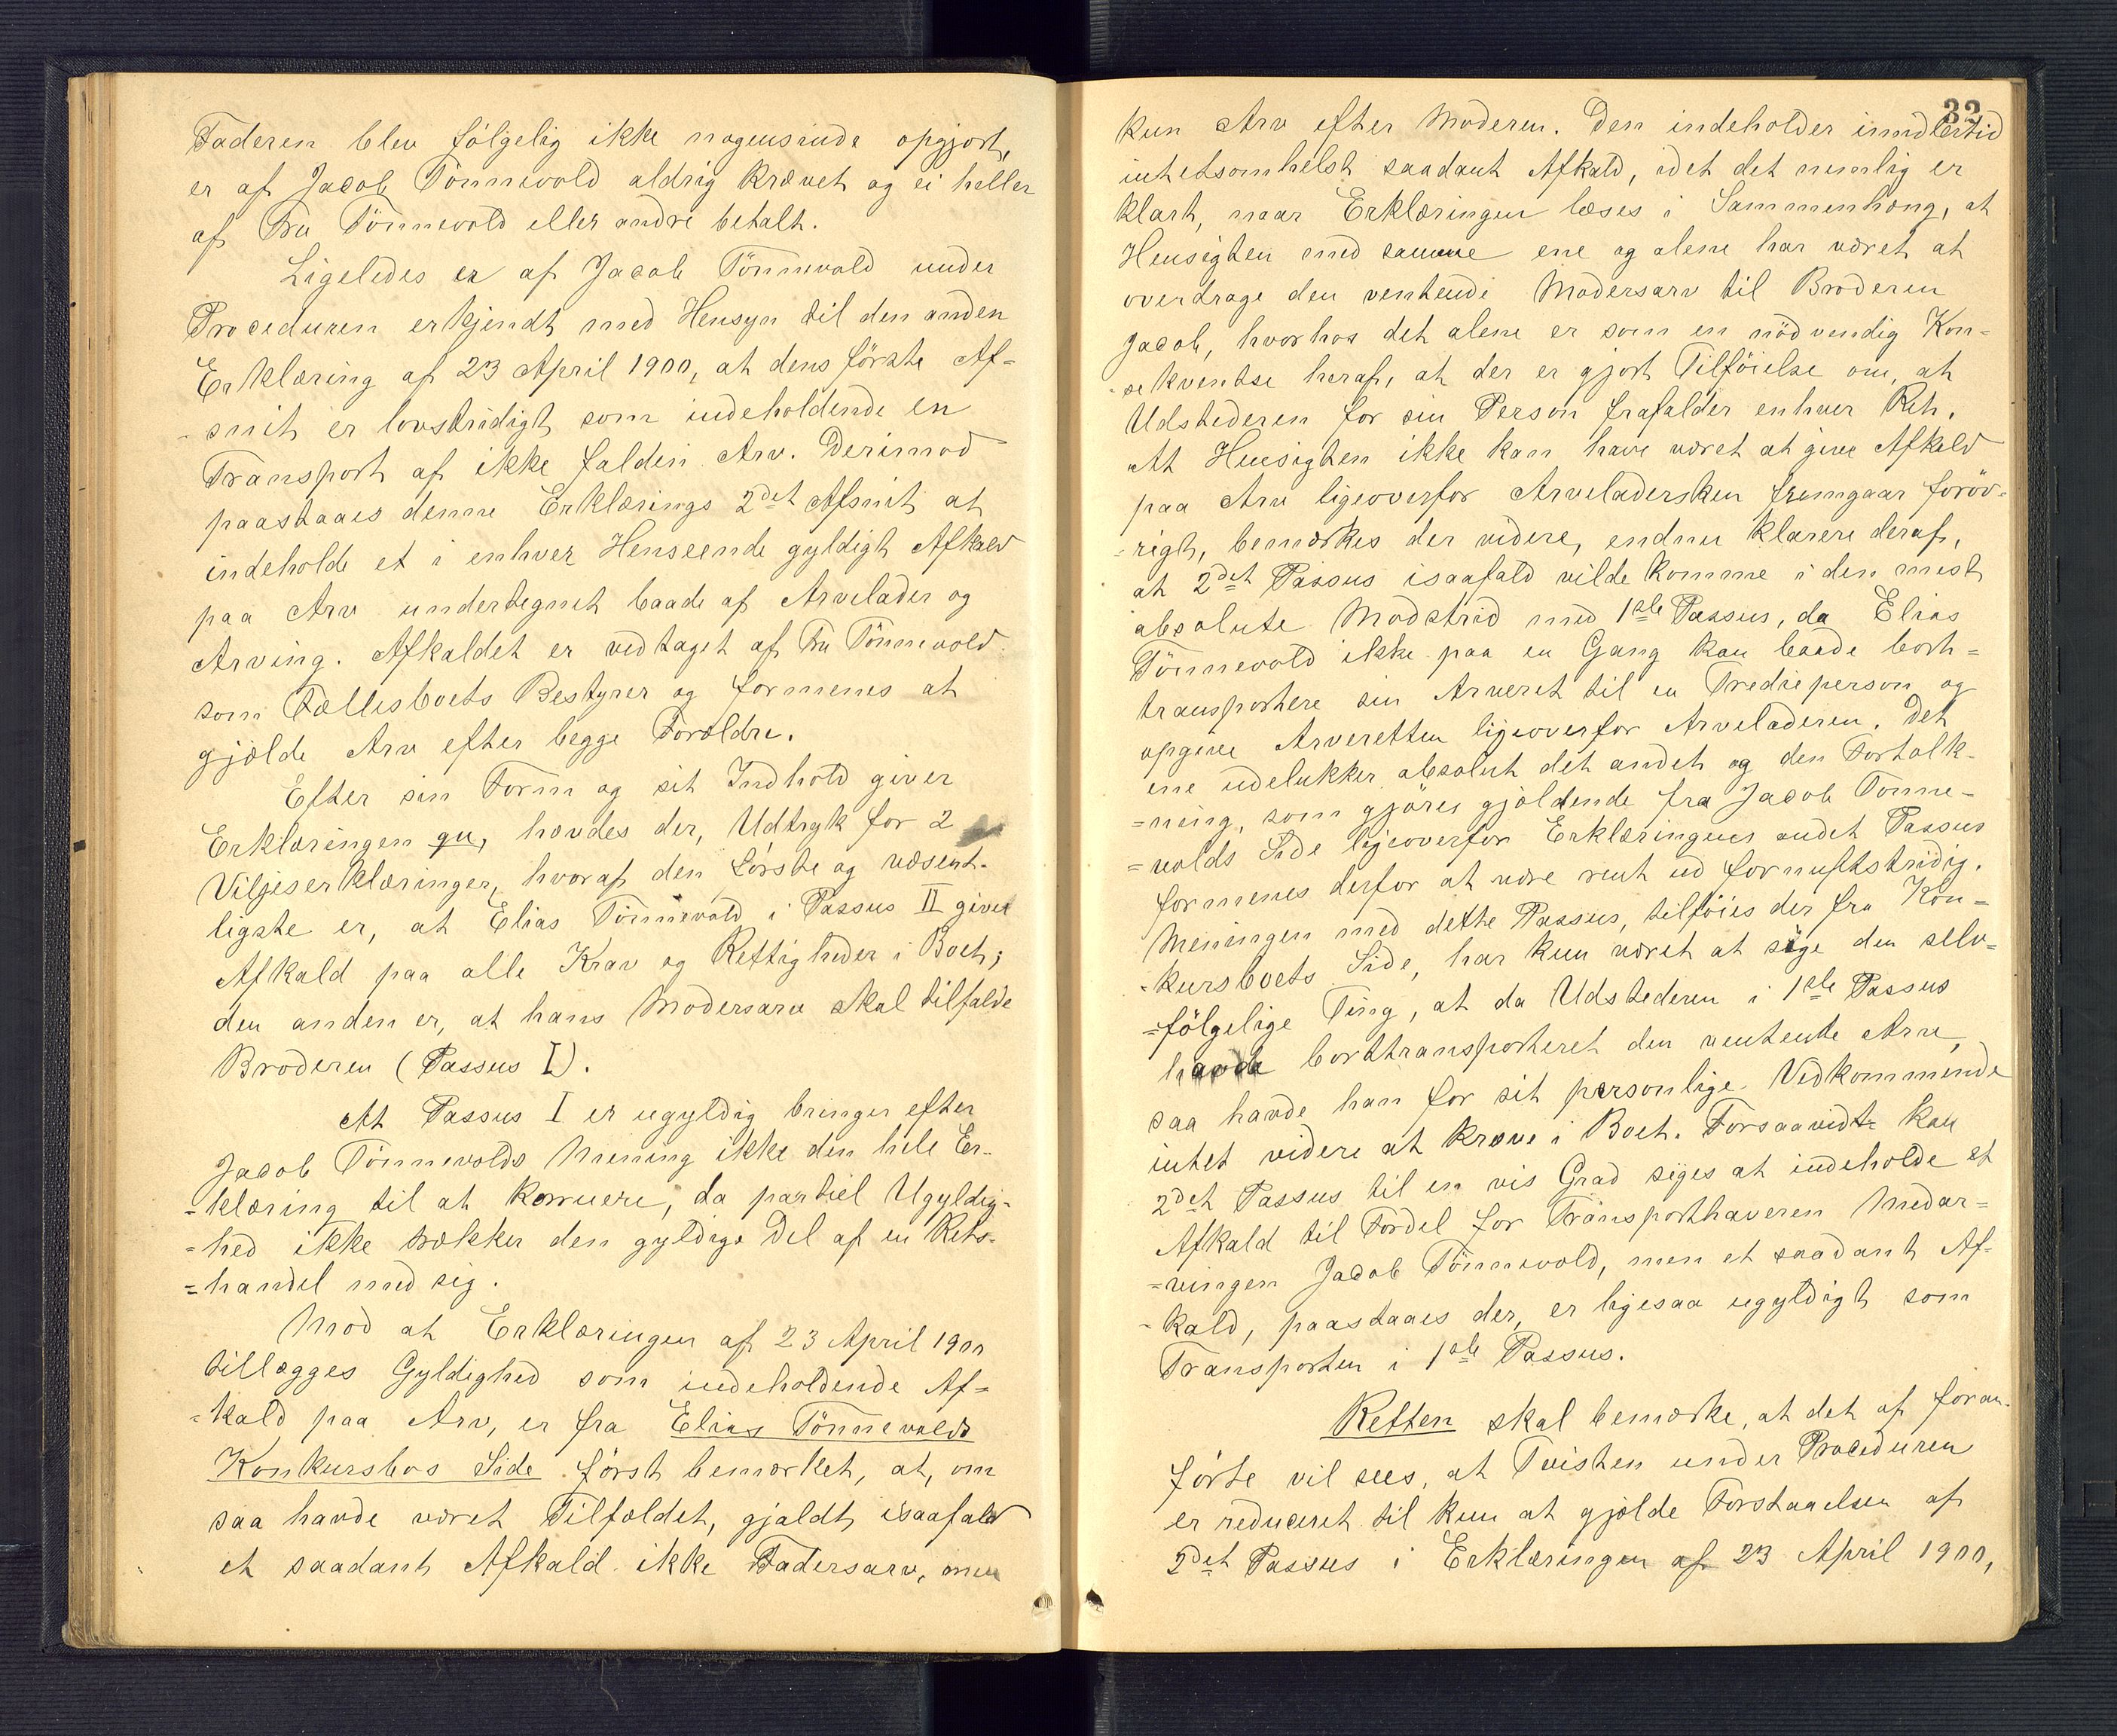 Faderen blev fölgelig ikke nogensinde opgjort,
er af Jacob Tönnevold aldrig krævet og ei heller
af Fru Tönnevold eller andre betalt.
Ligeledes er af Jacob Tönnevold under
Proceduren erkjendt med Hensyn til den anden
Erklæring af 23 April 1900, at dens förste Af=
-snit er lovstridigt som indeholdende en
Transport af ikke falden Arv. Derimod
paastaaes denne Erklærings 2det Afsnit at
indeholde et i enhver Henseende gyldigt Afkald
paa Arv undertegnet baade af Arvelader og
Arving. Afkaldet er vedtaget af Fru Tönnevold
som Fællesboets Bestyrer og formenes at
gjælde Arv efter begge Forældre.
Efter sin Form og sit Indhold giver
Erklæringen qu, hævdes der, Udtryk for 2
Viljeserklæringer, hvoraf den förste og væsent-
ligste er, at Elias Tönnevold i Passus II giver
Afkald paa alle Krav og Rettigheder i Boet;
den anden er, at hans Modersarv skal tilfalde
Broderen (Passus I).
At Passus I er ugyldig bringer efter
Jacob Tönnevolds Mening ikke den hele Er-
-klæring til at korruere, da partiel Ugyldig-
=hed ikke trækker den gyldige Del af en Rets-
=handel med sig.
Mod at Erklæringen af 23 April 1900
tillægges Gyldighed som indeholdende Af=
=kald paa Arv, er fra Elias Tönnevolds
Konkursbos Side først bemærket, at, om
saa havde været Tilfældet, gjaldt isaafald
et saadant Afkald ikke Fadersarv, men
32
kun Arv efter Moderen. Den indeholder imidlertid
intetsomhelst saadant Afkald, idet det nemlig er
klart, naar Erklæringen læses i Sammenhæng, at
Hensigten med samme ene og alene har været at
overdrage den ventende Modersarv til Broderen
Jacob, hvorhos det alene er som en nödvendig Kon=
-sekventse heraf, at der er gjort Tilföielse om, at
Udstederen for sin Person frafalder enhver Ret.
At Hensigten ikke kan have været at give Afkald
paa Arv ligeoverfor Arveladersken fremgaar foröv-
=rigt, bemærkes der videre, endnu klarere deraf,
at 2det Passus isaafald vilde komme i den mest
absolute Modstrid med 1ste Passus, da Elias
Tönnevold ikke paa en Gang kan baade bort=
transportere sin Arveret til en Trediepersom og
opgive Arveretten ligeoverfor Arveladeren. Det
ene udelukker absolut det andet og den Fortolk-
=ning, som gjöres gjældende fra Jacob Tönne-
=volds Side ligeoverfor Erklæringens andet Passus
formenes derfor at være rent ud fornuftstridig.
Meningen med dette Passus, tilföies der fra Kon=
-kursboets Side, har kun været at sige den selv=
=fölgelige Ting, at da Udstederen i 1ste Passus
havde borttransporteret den ventente Arv,
saa havde han for sit personlige Vedkommende
intet videre at kræve i Boet. Forsaavidt kan
2det Passus til en vis Grad siges at indeholde et
Afkald til Fordel for Transporthaveren Medar=
=vingen Jacob Tönnevold, men et saadant Af-
-kald, paastaaes der, er ligesaa ugyldigt som
Transporten i 1ste Passus.
Retten skal bemærke, at det af foran-
förte vil sees, at Tvisten under Proceduren
er reduceret til kun at gjælde Forstaaelsen af
2det Passus i Erklæringen af 23 April 1900,